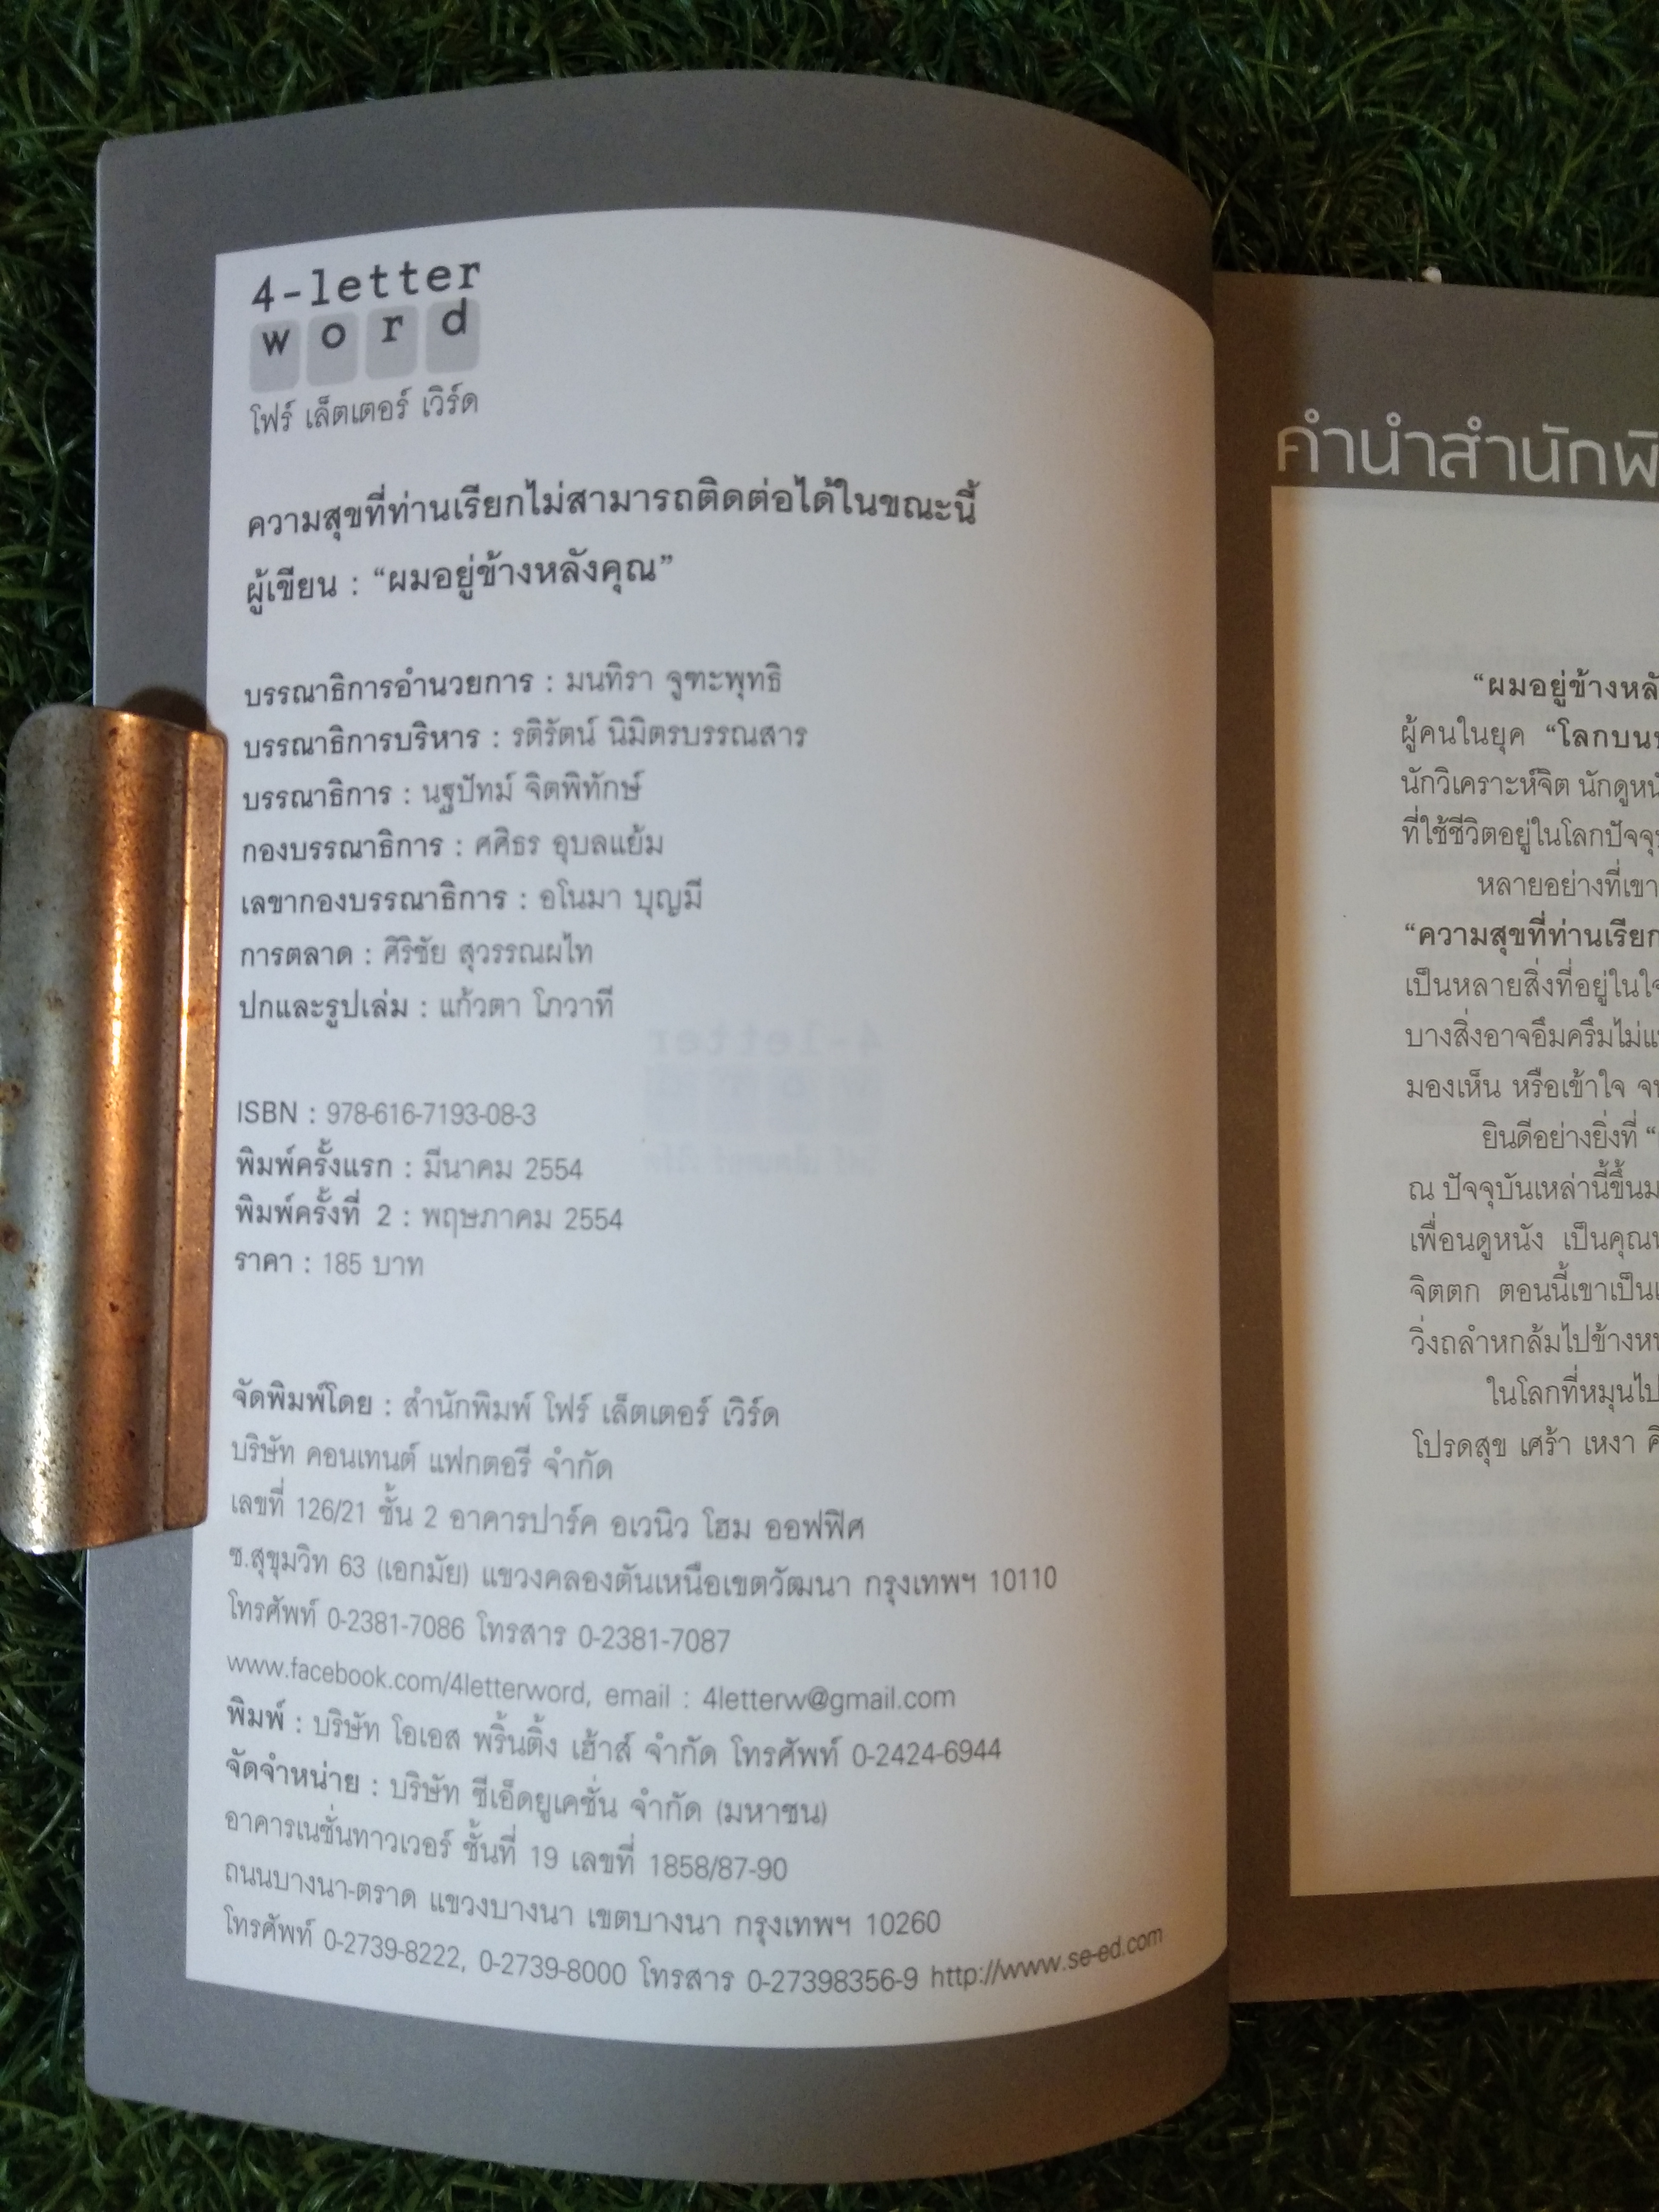 4-letter
word
โฟร์ เล็ตเตอร์ เวิร์ด
ความสุขที่ท่านเรียกไม่สามารถติดต่อได้ในขณะนี้
ผู้เขียน : “ผมอยู่ข้างหลังคุณ”
บรรณาธิการอำนวยการ : มนทิรา จูฑะพุทธิ
บรรณาธิการบริหาร : รติรัตน์ นิมิตรบรรณสาร
บรรณาธิการ : นฐปัทม์ จิตพิทักษ์
กองบรรณาธิการ : ศศิธร อุบลแย้ม
เลขากองบรรณาธิการ : อโนมา บุญมี
การตลาด : ศิริชัย สุวรรณผไท
ปกและรูปเล่ม : แก้วตา โภวาที
ISBN : 978-616-7193-08-3
พิมพ์ครั้งแรก : มีนาคม 2554
พิมพ์ครั้งที่ 2 : พฤษภาคม 2554
ราคา : 185 บาท
จัดพิมพ์โดย : สำนักพิมพ์ โฟร์ เล็ตเตอร์ เวิร์ด
บริษัท คอนเทนต์ แฟกตอรี จำกัด
เลขที่ 126/21 ชั้น 2 อาคารปาร์ค อเวนิว โฮม ออฟฟิศ
ซ.สุขุมวิท 63 (เอกมัย) แขวงคลองตันเหนือเขตวัฒนา กรุงเทพฯ 10110
โทรศัพท์ 0-2381-7086 โทรสาร 0-2381-7087
www.facebook.com/4letterword, email : 4letterw@gmail.com
พิมพ์ : บริษัท โอเอส พริ้นติ้ง เฮ้าส์ จำกัด โทรศัพท์ 0-2424-6944
จัดจำหน่าย : บริษัท ซีเอ็ดยูเคชั่น จำกัด (มหาชน)
อาคารเนชั่นทาวเวอร์ ชั้นที่ 19 เลขที่ 1858/87-90
ถนนบางนา-ตราด แขวงบางนา เขตบางนา กรุงเทพฯ 10260
โทรศัพท์ 0-2739-8222, 0-2739-8000 โทรสาร 0-27398356-9 http://www.se-ed.com
คำนำสำนักพิ
“ผมอยู่ข้างหลั
ผู้คนในยุค “โลกบน
นักวิเคราะห์จิต นักดูหนั
ที่ใช้ชีวิตอยู่ในโลกปัจจุ
หลายอย่างที่เขา
“ความสุขที่ท่านเรียก
เป็นหลายสิ่งที่อยู่ในใจ
บางสิ่งอาจอึมครึมไม่แ
มองเห็น หรือเข้าใจ จ
ยินดีอย่างยิ่งที่ “
ณ ปัจจุบันเหล่านี้ขึ้นม
เพื่อนดูหนัง เป็นคุณ
จิตตก ตอนนี้เขาเป็น
วิ่งถลำหกล้มไปข้างห
ในโลกที่หมุนไป
โปรดสุข เศร้า เหงา